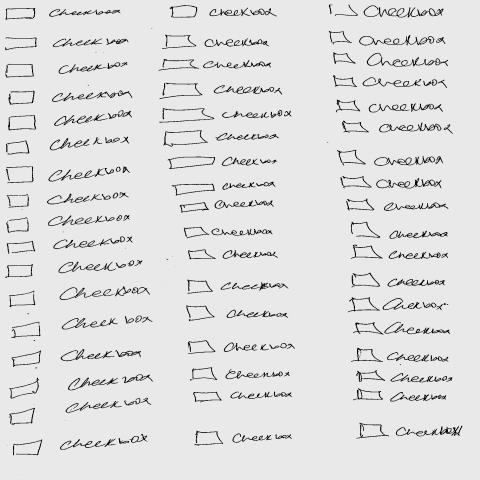 Checkbox
Check box
Checkbox
Checkbox
Checkbox
Check box
Checkbox
Checkbox
Checkbox
Checkbox
Checkbox
Checkbox
Check box
Checkbox
Check box
Check box
Checkbox
Checkbox
Checkbox
Checkbox
Checkbox
Checkbox
Checkbox
Checkbox
checkbox
Checkbox
Checkbox
Checkbox
Checkbox
Checkbox
Checkbox
Checkbox
Checkbox
Checkbox
Checkbox
Checkbox
Checkbox
Checkbox
Checkbox
Checkbox
Checkbox
Checkbox
Checkbox
Checkbox
Checkbox
Checkbox
Checkbox
Checkbox
Checkbox
Checkbox
Checkbox
Checkbox